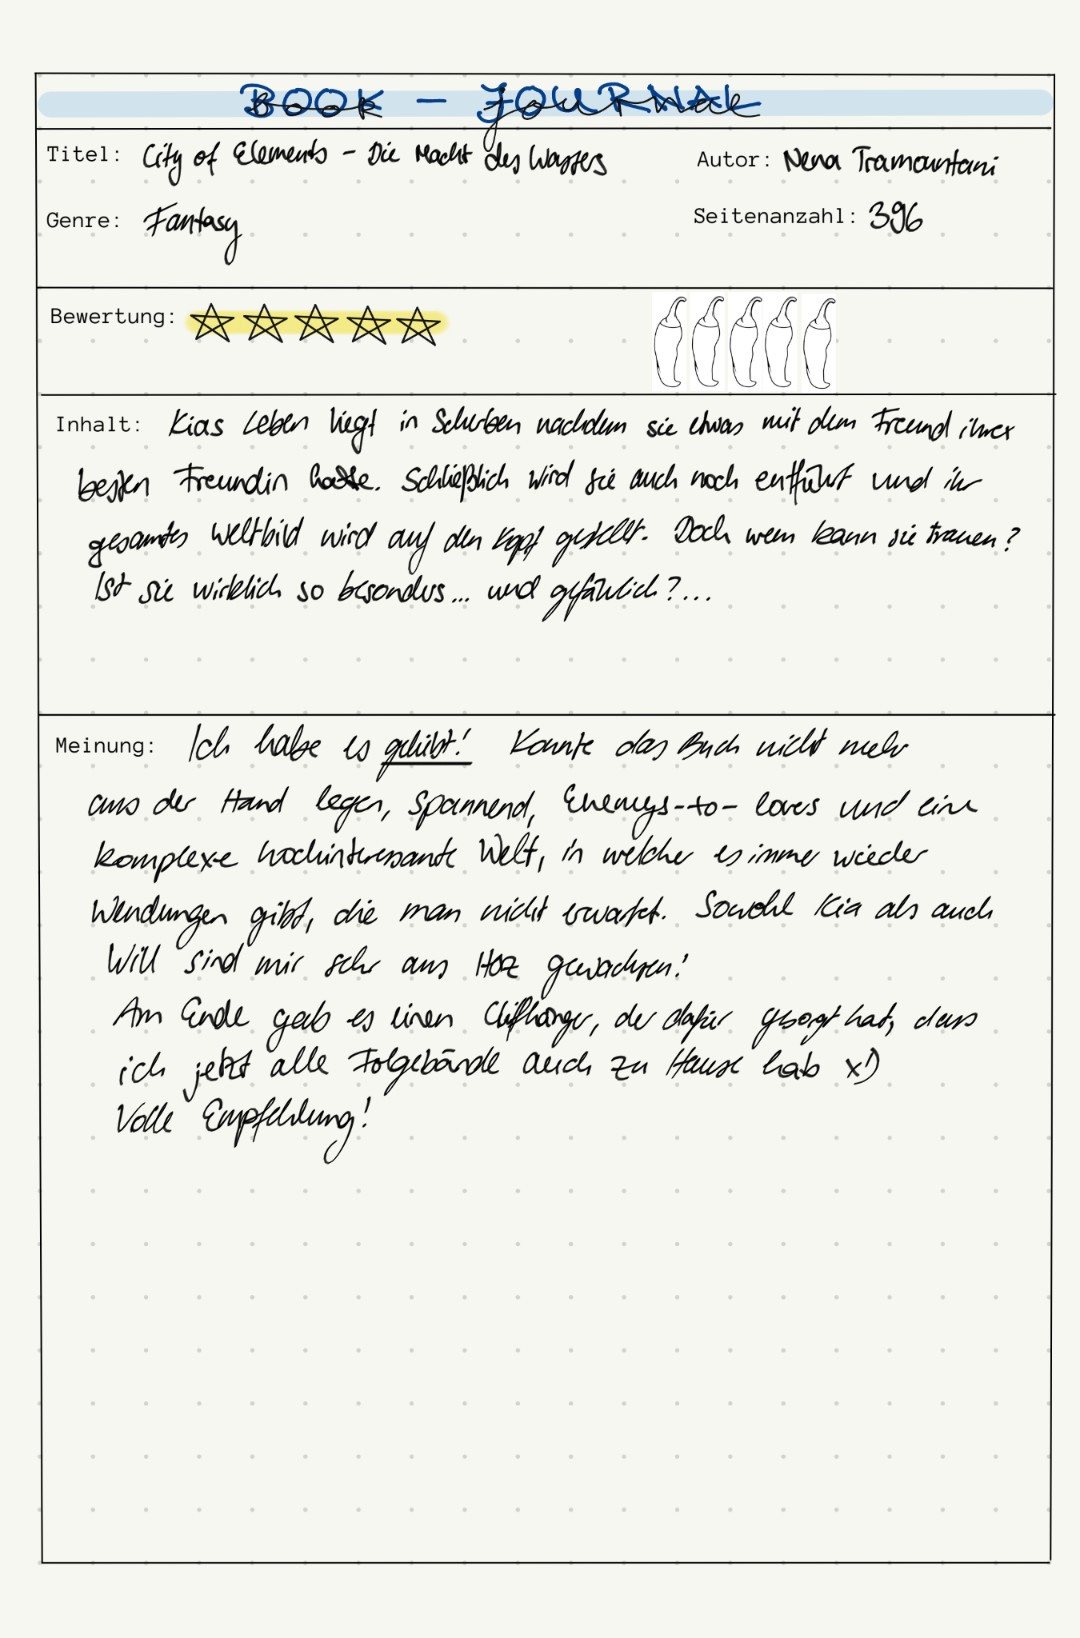 BOOK - JOURNAL
Titel: City of Elements - Die Macht des Wassers
Autor: Nena Tramountani
Genre: Fantasy
Seitenanzahl: 396
Bewertung:
Inhalt: Kias Leben liegt in Scherben nachdem sie etwas mit dem Freund ihrer
besten Freundin hatte. Schließlich wird sie auch noch entführt und ihr
gesamtes Weltbild wird auf den Kopf gestellt. Doch wem kann sie trauen?
Ist sie wirklich so besonders... und gefährlich?...
Meinung: Ich habe es geliebt! Konnte das Buch nicht mehr
aus der Hand legen, Spannend, Enemys-to-lovers und eine
komplexe hochinteressante Welt, in welcher es immer wieder
Wendungen gibt, die man nicht erwartet. Sowohl Kia als auch
Will sind mir sehr ans Herz gewachsen!
Am Ende gab es einen Cliffhanger, der dafür gesorgt hat, dass
ich jetzt alle Folgebände auch zu Hause hab x')
Volle Empfehlung!